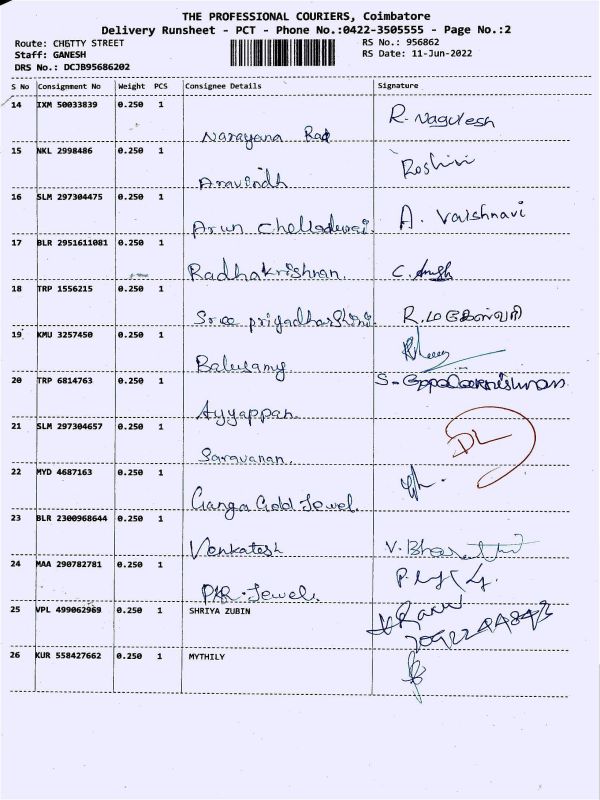 THE PROFESSIONAL COURIERS, Coimbatore
Delivery Runsheet - PCT - Phone No.:0422-3505555 - Page No.:2
Route: CHETTY STREET
RS No.: 956862
Staff: GANESH
RS Date: 11-Jun-2022
DRS No.: DCJB95686202
S No Consignment No Weight PCS Consignee Details Signature
14 IXM 50033839 0.250 1 Narayana Rao R. Nagulesh
15 NKL 2998486 0.250 1 Aravindh Roshini
16 SLM 297304475 0.250 1 Arun Chelladurai. A. Vaishnavi
17 BLR 2951611081 0.250 1 Radhakrishnan.
18 TRP 1556215 0.250 1 Sree priyadharshini. R.
19 KMU 3257450 0.250 1 Balusamy
20 TRP 6814763 0.250 1 Ayyappan S-Gopalakrishnan
21 SLM 297304657 0.250 1 Saravanan. DL
22 MYD 4687163 0.250 1 Ganga Gold Jewel.
23 BLR 2300968644 0.250 1 Venkatesh V. Bharathi
24 MAA 290782781 0.250 1 PKR. Jewel.
25 VPL 499062969 0.250 1 SHRIYA ZUBIN
26 KUR 558427662 0.250 1 MYTHILY